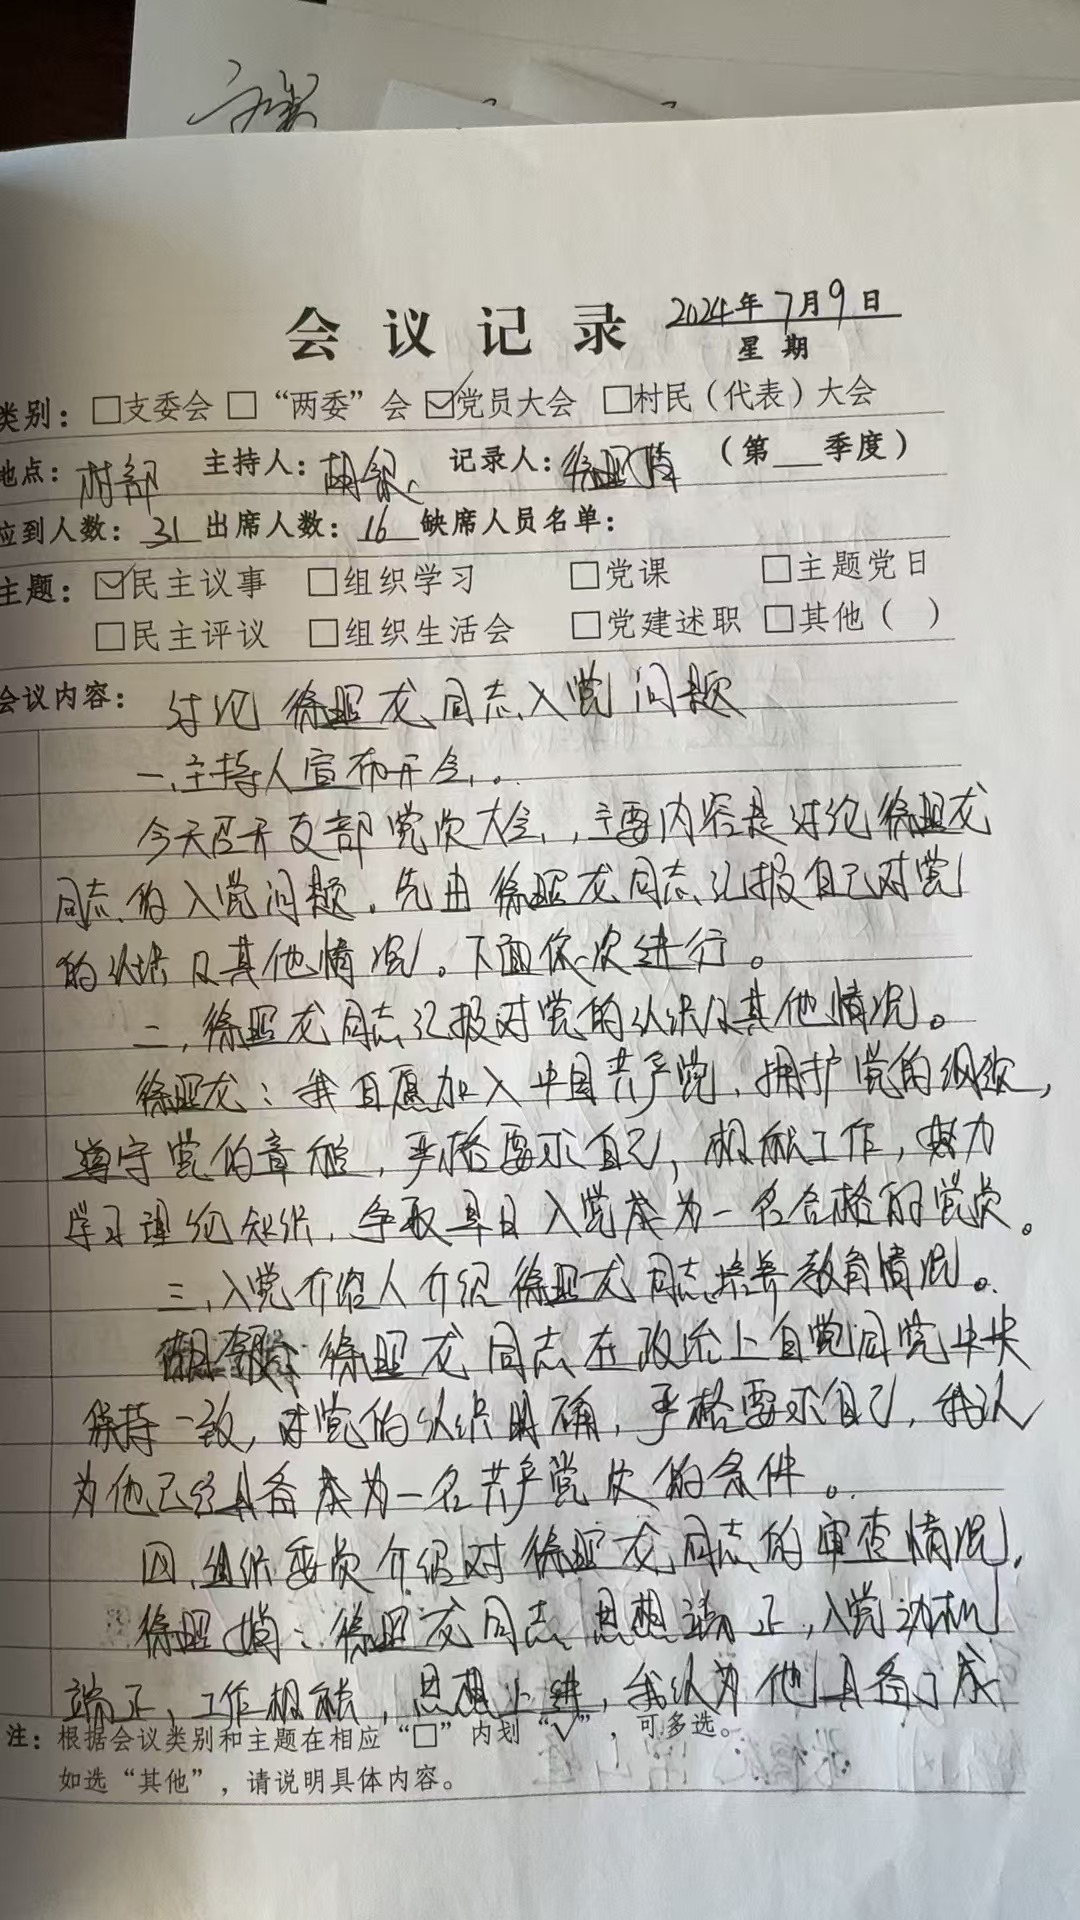 会议记录 2024年7月9日
星期
类别：□支委会 □“两委”会 ☑党员大会 □村民（代表）大会
地点：村部 主持人：胡银 记录人：徐熙 （第___季度）
应到人数：31 出席人数：16 缺席人员名单：
主题：☑民主议事 □组织学习 □党课 □主题党日
□民主评议 □组织生活会 □党建述职 □其他（ ）
会议内容：讨论徐熙龙同志入党问题
一、主持人宣布开会。
今天召开支部党员大会，主要内容是讨论徐熙龙
同志的入党问题，先由徐熙龙同志汇报自己对党
的认识及其他情况。下面依次进行。
二，徐熙龙同志汇报对党的认识及其他情况。
徐熙龙：我自愿加入中国共产党，拥护党的纲领，
遵守党的章程，严格要求自己，积极工作，努力
学习理论知识，争取早日入党成为一名合格的党员。
三、入党介绍人介绍徐熙龙同志培养教育情况。
胡银：徐熙龙同志在政治上自觉同党中央
保持一致，对党的认识明确，严格要求自己，我认
为他已经具备成为一名共产党员的条件。
四、组织委员介绍对徐熙龙同志的审查情况，
徐熙娟：徐熙龙同志思想端正，入党动机
端正，工作积极，思想上进，我认为他具备了成
注：根据会议类别和主题在相应“□”内划“√”，可多选。
如选“其他”，请说明具体内容。